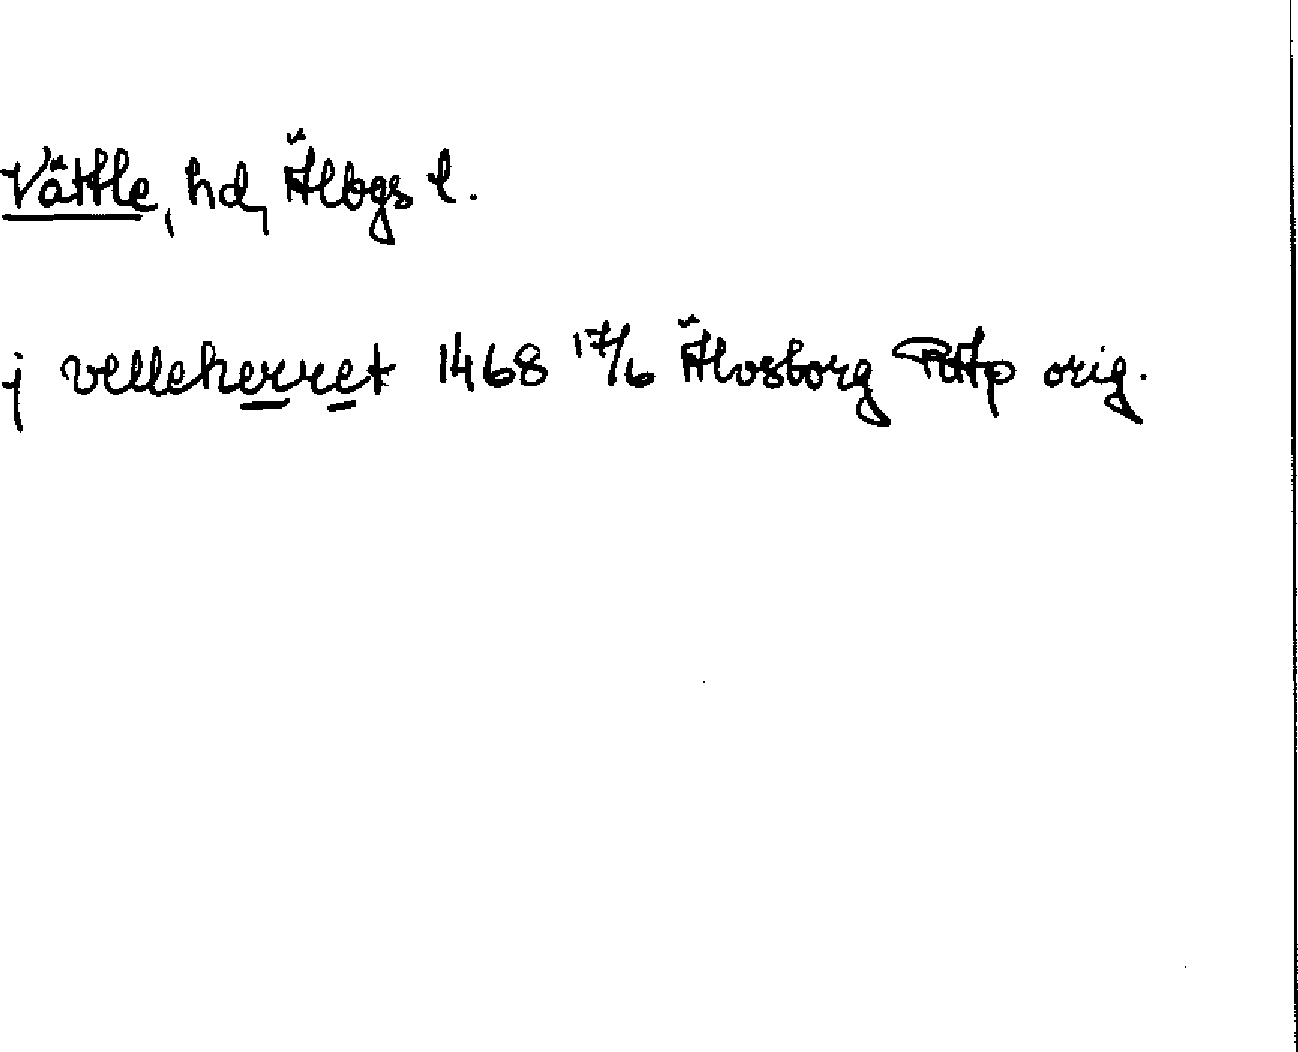 Vättle, hd, Älbgs l.
j velleherret 1468 17/6 Älvsborg RAp orig.